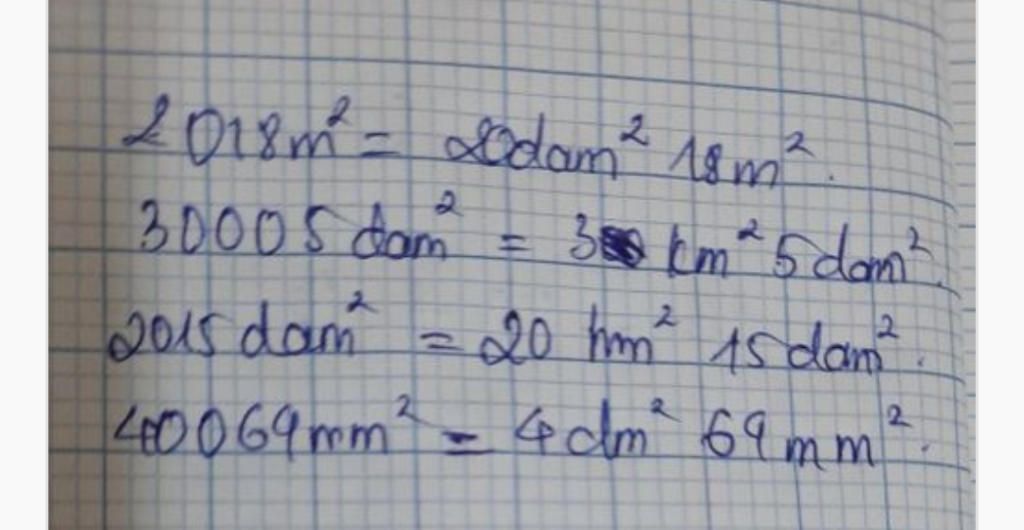 2018m² = 20dam² 18m².
30005 dam² = 3 km² 5dam².
2015 dam² = 20 hm² 15dam².
40069mm² = 4dm² 69mm².